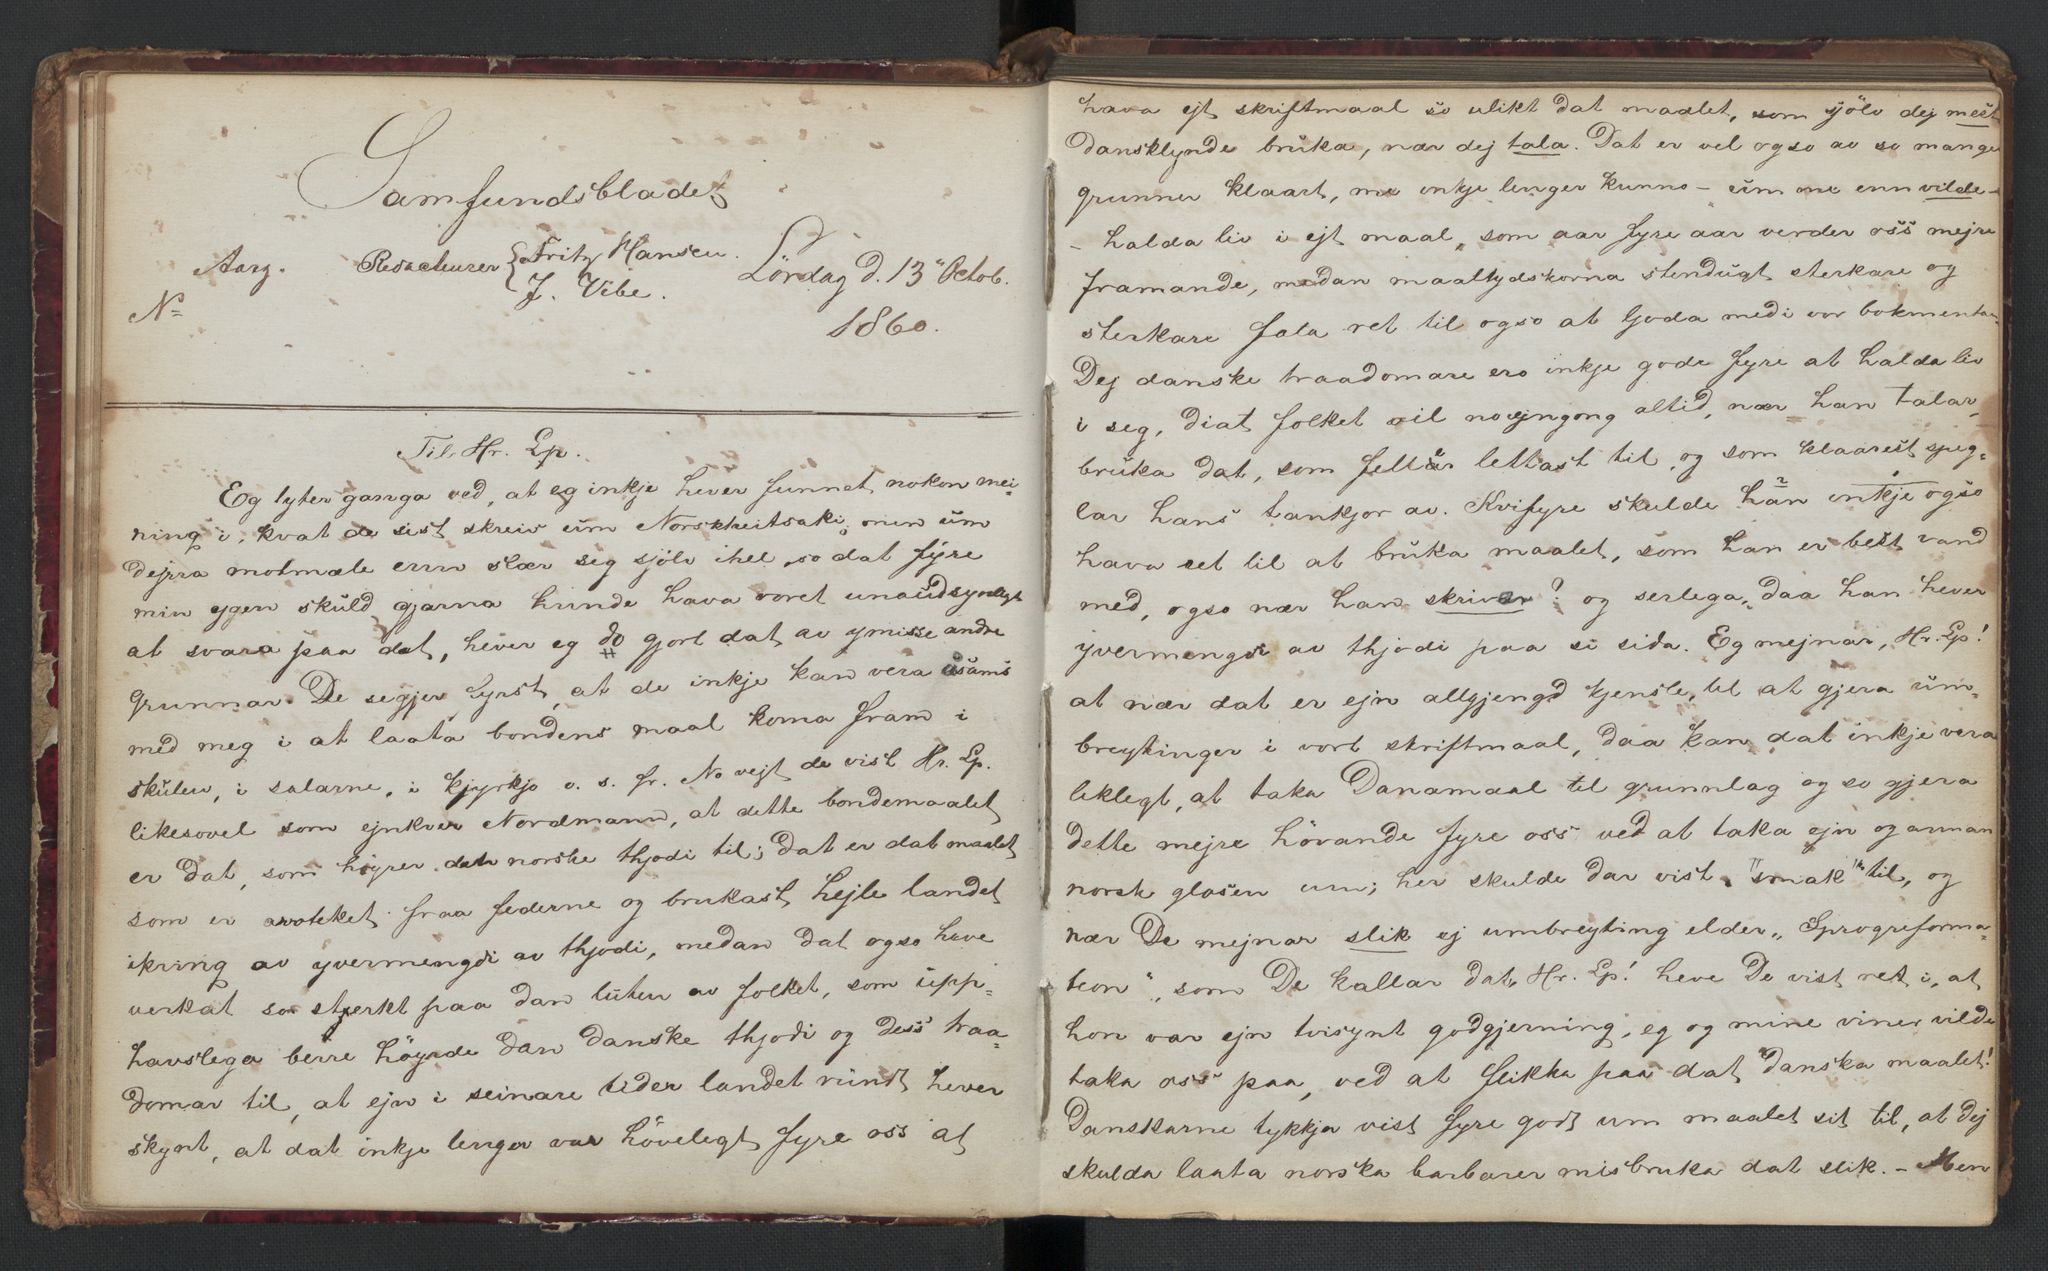 Samfundsbladet
Aarg. Redacteurer { Fritz Hansen. Lördag d. 13 Octob.
J. Vibe.
No 1860.
Til Hr. Lp.
Eg lyter ganga ved, at eg inkje hever funnet nokon mei-
ning i, kvat de sist skreiv um Norskheitsaki; men um
dejrra motmæle enn skær seg sjölv ihel, so dat fyre
min ygen skuld gjarna kunde hava voret unaudsynlegt
at svara paa det, hever eg do gjort dat av ymisse andre
grunnar. De segjer fyrst, at de inkje kan vera usams
med meg i at laata bondens maal koma fram i
skulen, i salarne, i kjyrkjo o. s. fr. No vejt de vist Hr. Lp.
likesovel som ejnkver Nordmann, at dette bondemaalet
er dat, som höyrer den norske thjodi til; dat er dat maalet
som er avteket fraa federne og brukast hejle landet
ikring av yvermengdi av thjodi, medan dat ogso heve
verkat so sterkt paa dan luten av folket, som upp-
havslega berre höyrde dan danske thjodi og dess traa-
domar til, at ejn i seinare tider landet rundt hever
skynt, at dat inkje lenger var hövelegt fyre oss at
hava ejt skriftmaal so ulikt dat maalet, som sjölv dej mest
dansklynde bruka, nær dej tala. Dat er vel ogso av so mange
grunner klaart, me inkje lenger kunno – um me enn vilde –
– halda liv i ejt maal, som aar fyre aar verder oss mejre
framande, medan maallydskorna stendugt sterkare og
sterkare fala ret til ogso at ljoda med i vor bokmentan
Dej danske traadomare ero inkje gode fyre at halda liv
i seg, diat folket vil no ejngong altid, nær han talar,
bruka dat, som fell er lettast til, og som klaarest speg-
lar hans tankjor av. Kvifyre skulde han inkje ogso
hava ret til at bruka maalet, som han er best vand
med, ogso nær han skriver? og serlega, daa han hever
yvermengdi av thjodi paa si sida. Eg mejnar, Hr. Lp!
at nær dat er ejn allgjengd kjensle, til at gjera um-
breytinger i vort skriftmaal, daa kan dat inkje vera
liklegt, at taka Danamaal til grunnlag og so gjera
dette mejre hövande fyre oss ved at taka ejn og annan
norsk glosen um; her skulde dar vist "smak" til, og
nær De mejnar slik ej umbreyting elder „Sprogreforma-
tion“, som De kallar dat, Hr. Lp! heve De vist ret i, at
hon var ejn tvisynt godgjerning, eg og mine viner vilde
taka oss paa, ved at flikka paa dat danska maalet!
Danskarne tykkja vist fyre godt um maalet sit til, at dej
skulda laata norska barbarer misbruka dat slik. – Men